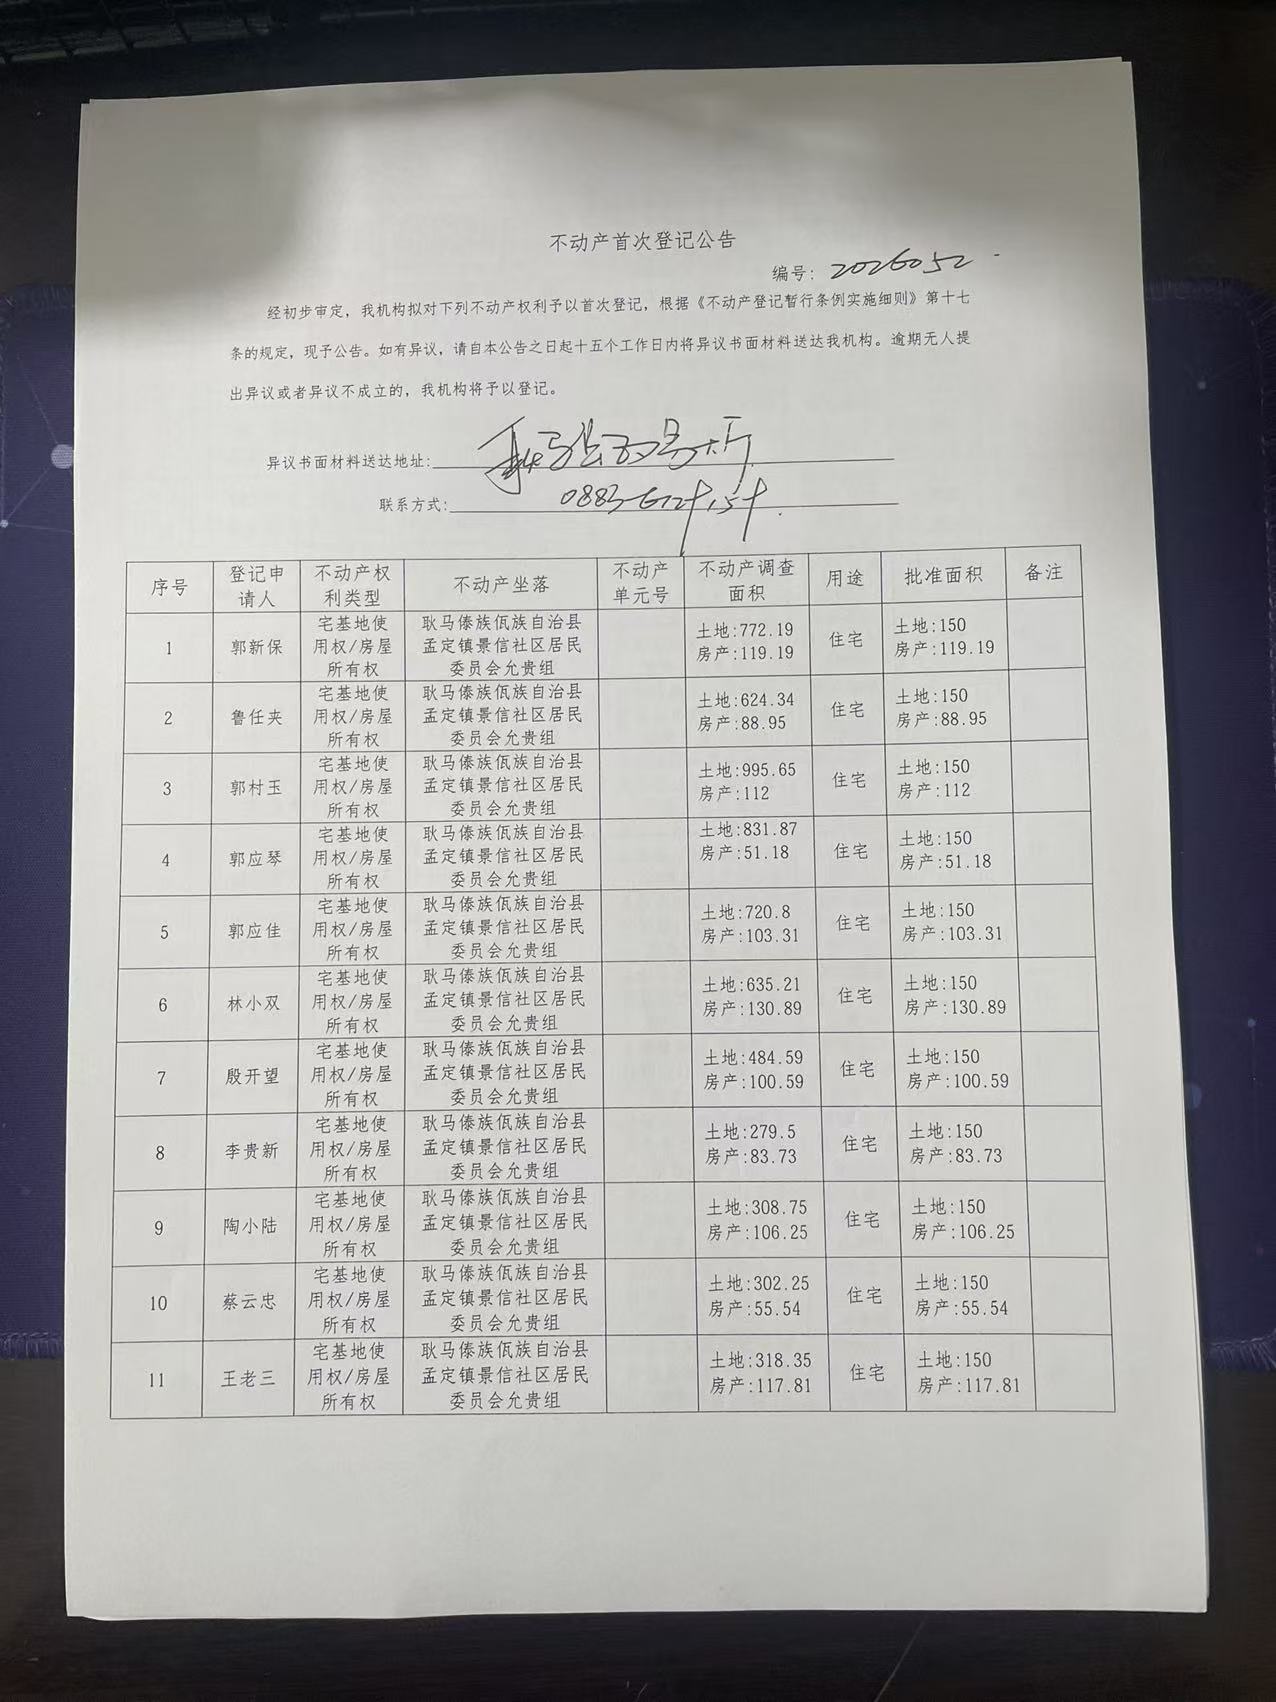 不动产首次登记公告
编号: 2026052
经初步审定，我机构拟对下列不动产权利予以首次登记，根据《不动产登记暂行条例实施细则》第十七
条的规定，现予公告。如有异议，请自本公告之日起十五个工作日内将异议书面材料送达我机构。逾期无人提
出异议或者异议不成立的，我机构将予以登记。
异议书面材料送达地址:
联系方式: 0883-
序号 登记申请人 不动产权利类型 不动产坐落 不动产单元号 不动产调查面积 用途 批准面积 备注
1 郭新保 宅基地使用权/房屋所有权 耿马傣族佤族自治县孟定镇景信社区居民委员会允贵组 土地:772.19 房产:119.19 住宅 土地:150 房产:119.19
2 鲁任夹 宅基地使用权/房屋所有权 耿马傣族佤族自治县孟定镇景信社区居民委员会允贵组 土地:624.34 房产:88.95 住宅 土地:150 房产:88.95
3 郭村玉 宅基地使用权/房屋所有权 耿马傣族佤族自治县孟定镇景信社区居民委员会允贵组 土地:995.65 房产:112 住宅 土地:150 房产:112
4 郭应琴 宅基地使用权/房屋所有权 耿马傣族佤族自治县孟定镇景信社区居民委员会允贵组 土地:831.87 房产:51.18 住宅 土地:150 房产:51.18
5 郭应佳 宅基地使用权/房屋所有权 耿马傣族佤族自治县孟定镇景信社区居民委员会允贵组 土地:720.8 房产:103.31 住宅 土地:150 房产:103.31
6 林小双 宅基地使用权/房屋所有权 耿马傣族佤族自治县孟定镇景信社区居民委员会允贵组 土地:635.21 房产:130.89 住宅 土地:150 房产:130.89
7 殷开望 宅基地使用权/房屋所有权 耿马傣族佤族自治县孟定镇景信社区居民委员会允贵组 土地:484.59 房产:100.59 住宅 土地:150 房产:100.59
8 李贵新 宅基地使用权/房屋所有权 耿马傣族佤族自治县孟定镇景信社区居民委员会允贵组 土地:279.5 房产:83.73 住宅 土地:150 房产:83.73
9 陶小陆 宅基地使用权/房屋所有权 耿马傣族佤族自治县孟定镇景信社区居民委员会允贵组 土地:308.75 房产:106.25 住宅 土地:150 房产:106.25
10 蔡云忠 宅基地使用权/房屋所有权 耿马傣族佤族自治县孟定镇景信社区居民委员会允贵组 土地:302.25 房产:55.54 住宅 土地:150 房产:55.54
11 王老三 宅基地使用权/房屋所有权 耿马傣族佤族自治县孟定镇景信社区居民委员会允贵组 土地:318.35 房产:117.81 住宅 土地:150 房产:117.81